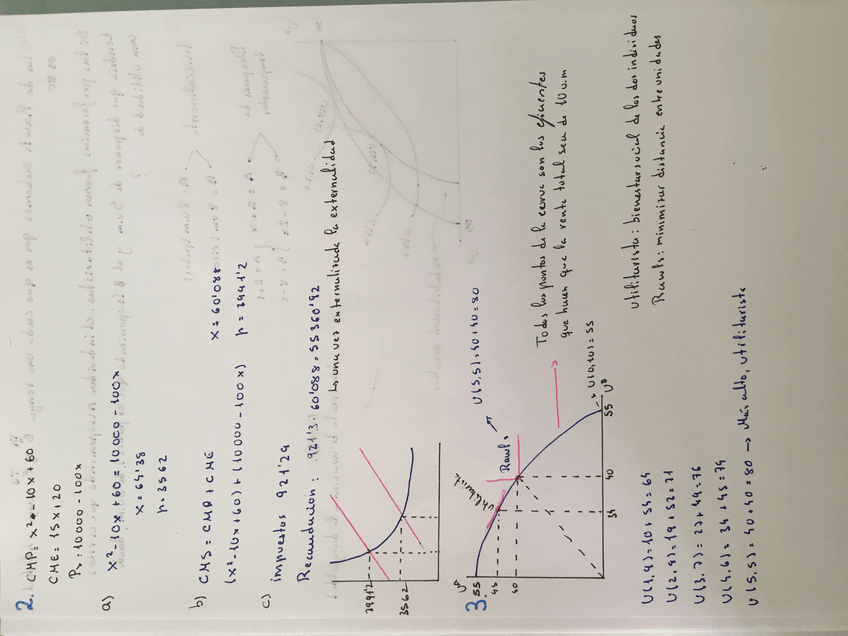 2. CMP = x² - 10x + 60
CME = 15x + 20
Px = 10000 - 100x
a) x² - 10x + 60 = 10000 - 100x
x = 64'38
p = 3562
b) CMS = CMP + CME
(x² - 10x + 60) + (10000 - 100x)
x = 60'088
p = 3991'2
c) Impuestos 921'29
Recaudación: 921'3 · 60'088 = 55360'92
↳ una vez externalizada la externalidad
3991'2
3562
3.
U(5,5) = 40 + 40 = 80
Rawls
Utilitarista
55
45
40
34 40 55 Uᴮ
U(0,10) = 55
Todos los puntos de la curva son los eficientes
que hacen que la renta total sea de 10 u.m
Utilitarista: bienestar social de los dos individuos
Rawls: minimizar distancia entre unidades
U(1,9) = 10 + 54 = 64
U(2,8) = 19 + 52 = 71
U(3,7) = 27 + 49 = 76
U(4,6) = 34 + 45 = 79
U(5,5) = 40 + 40 = 80 → Más alto, utilitarista